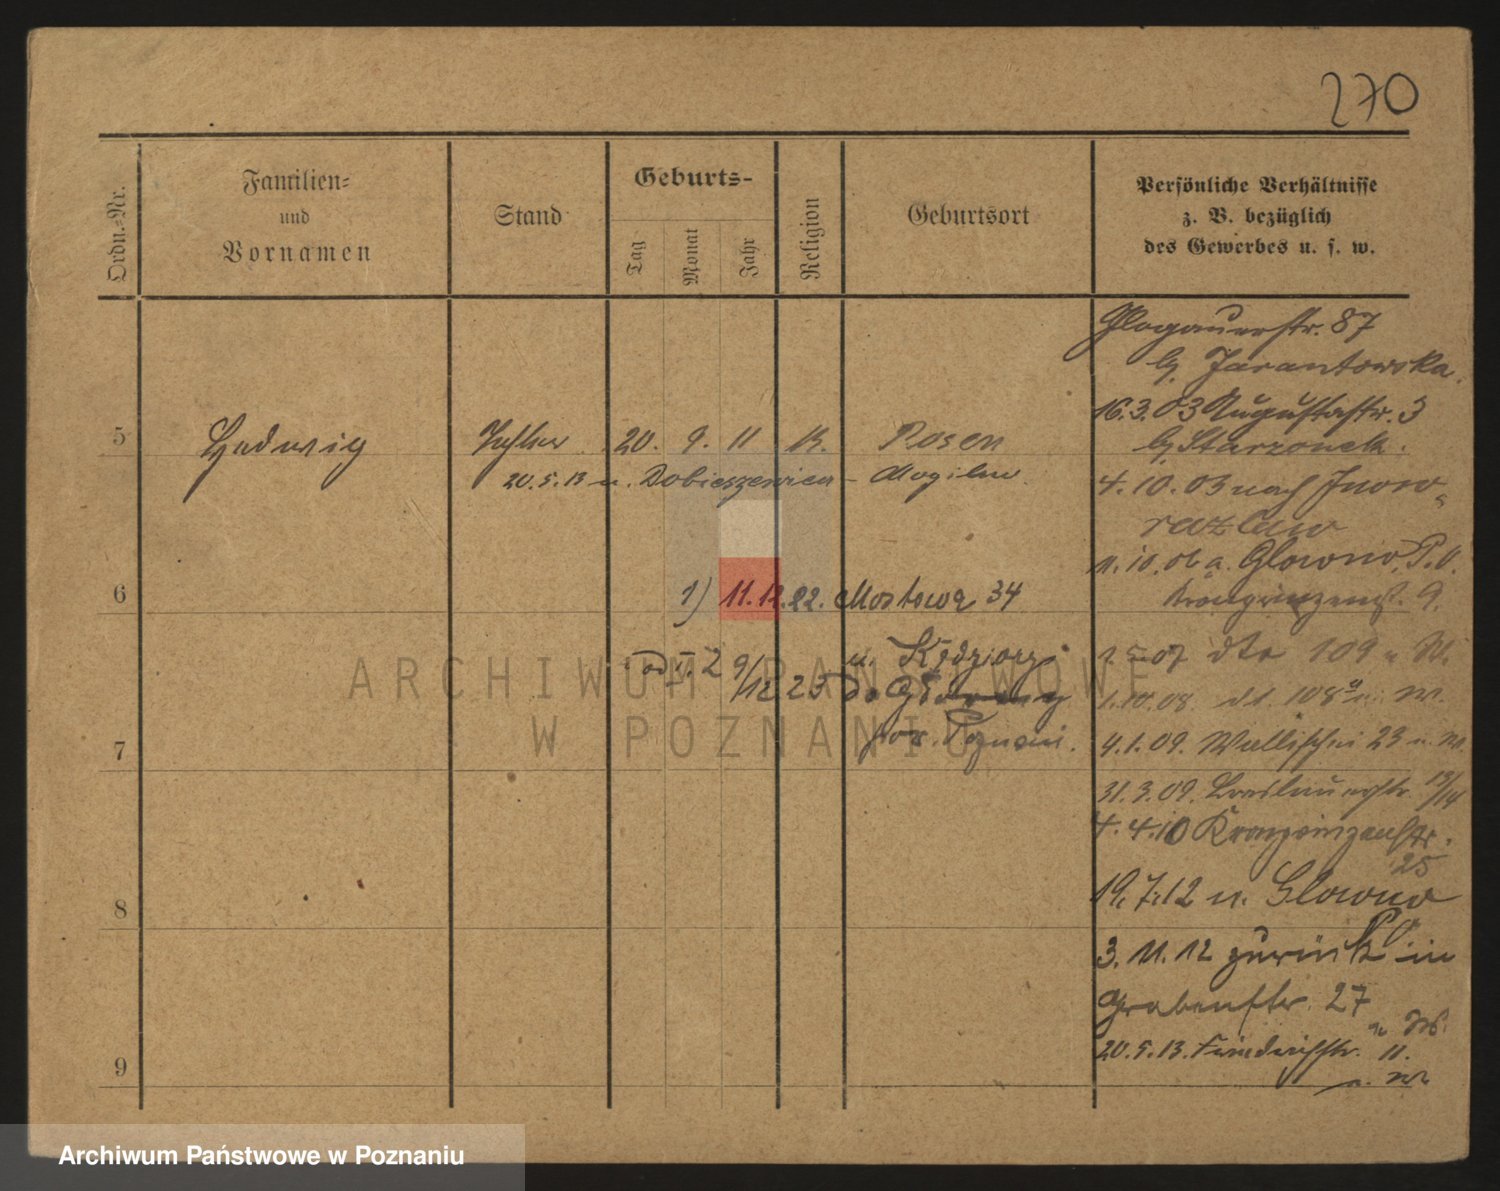 270
Ordn.-Nr.
Familien-
und
Vornamen
Stand
Geburts-
Tag
Monat
Jahr
Religion
Geburtsort
Persönliche Verhältnisse
z. B. bezüglich
des Gewerbes u. s. w.
Glogauerstr. 87
b/ Jarantowska.
16.3.03 Augustastr. 3
5 Hedwig Tochter 20. 9. 11 K. Posen
b/ Starzonek.
20.5.13 n. Dobieszewice - Mogilno
4.10.03 nach Inow-
razlaw
11.10.06 a. Glowno, P.O.
6
1) 11.12.22. Mostowa 34
Kronprinzenst. 9.
od 9/12 23 u. Kędziory
1.5.07 dto 109 u W.
do Główny
1.10.08. dt. 108a u. W.
pow. Poznań.
7
4.1.09. Wallischei 23 u. W.
31.3.09. Breslauerstr. 13/14
4.4.10 Kronprinzenstr.
25
8
19.7.12 n. Glowno
3.11.12 zurück in
Grabenstr. 27
u W.
20.5.13. Friedrichstr. 11.
9
u. W
ARCHIWUM PAŃSTWOWE
W POZNANIU
Archiwum Państwowe w Poznaniu